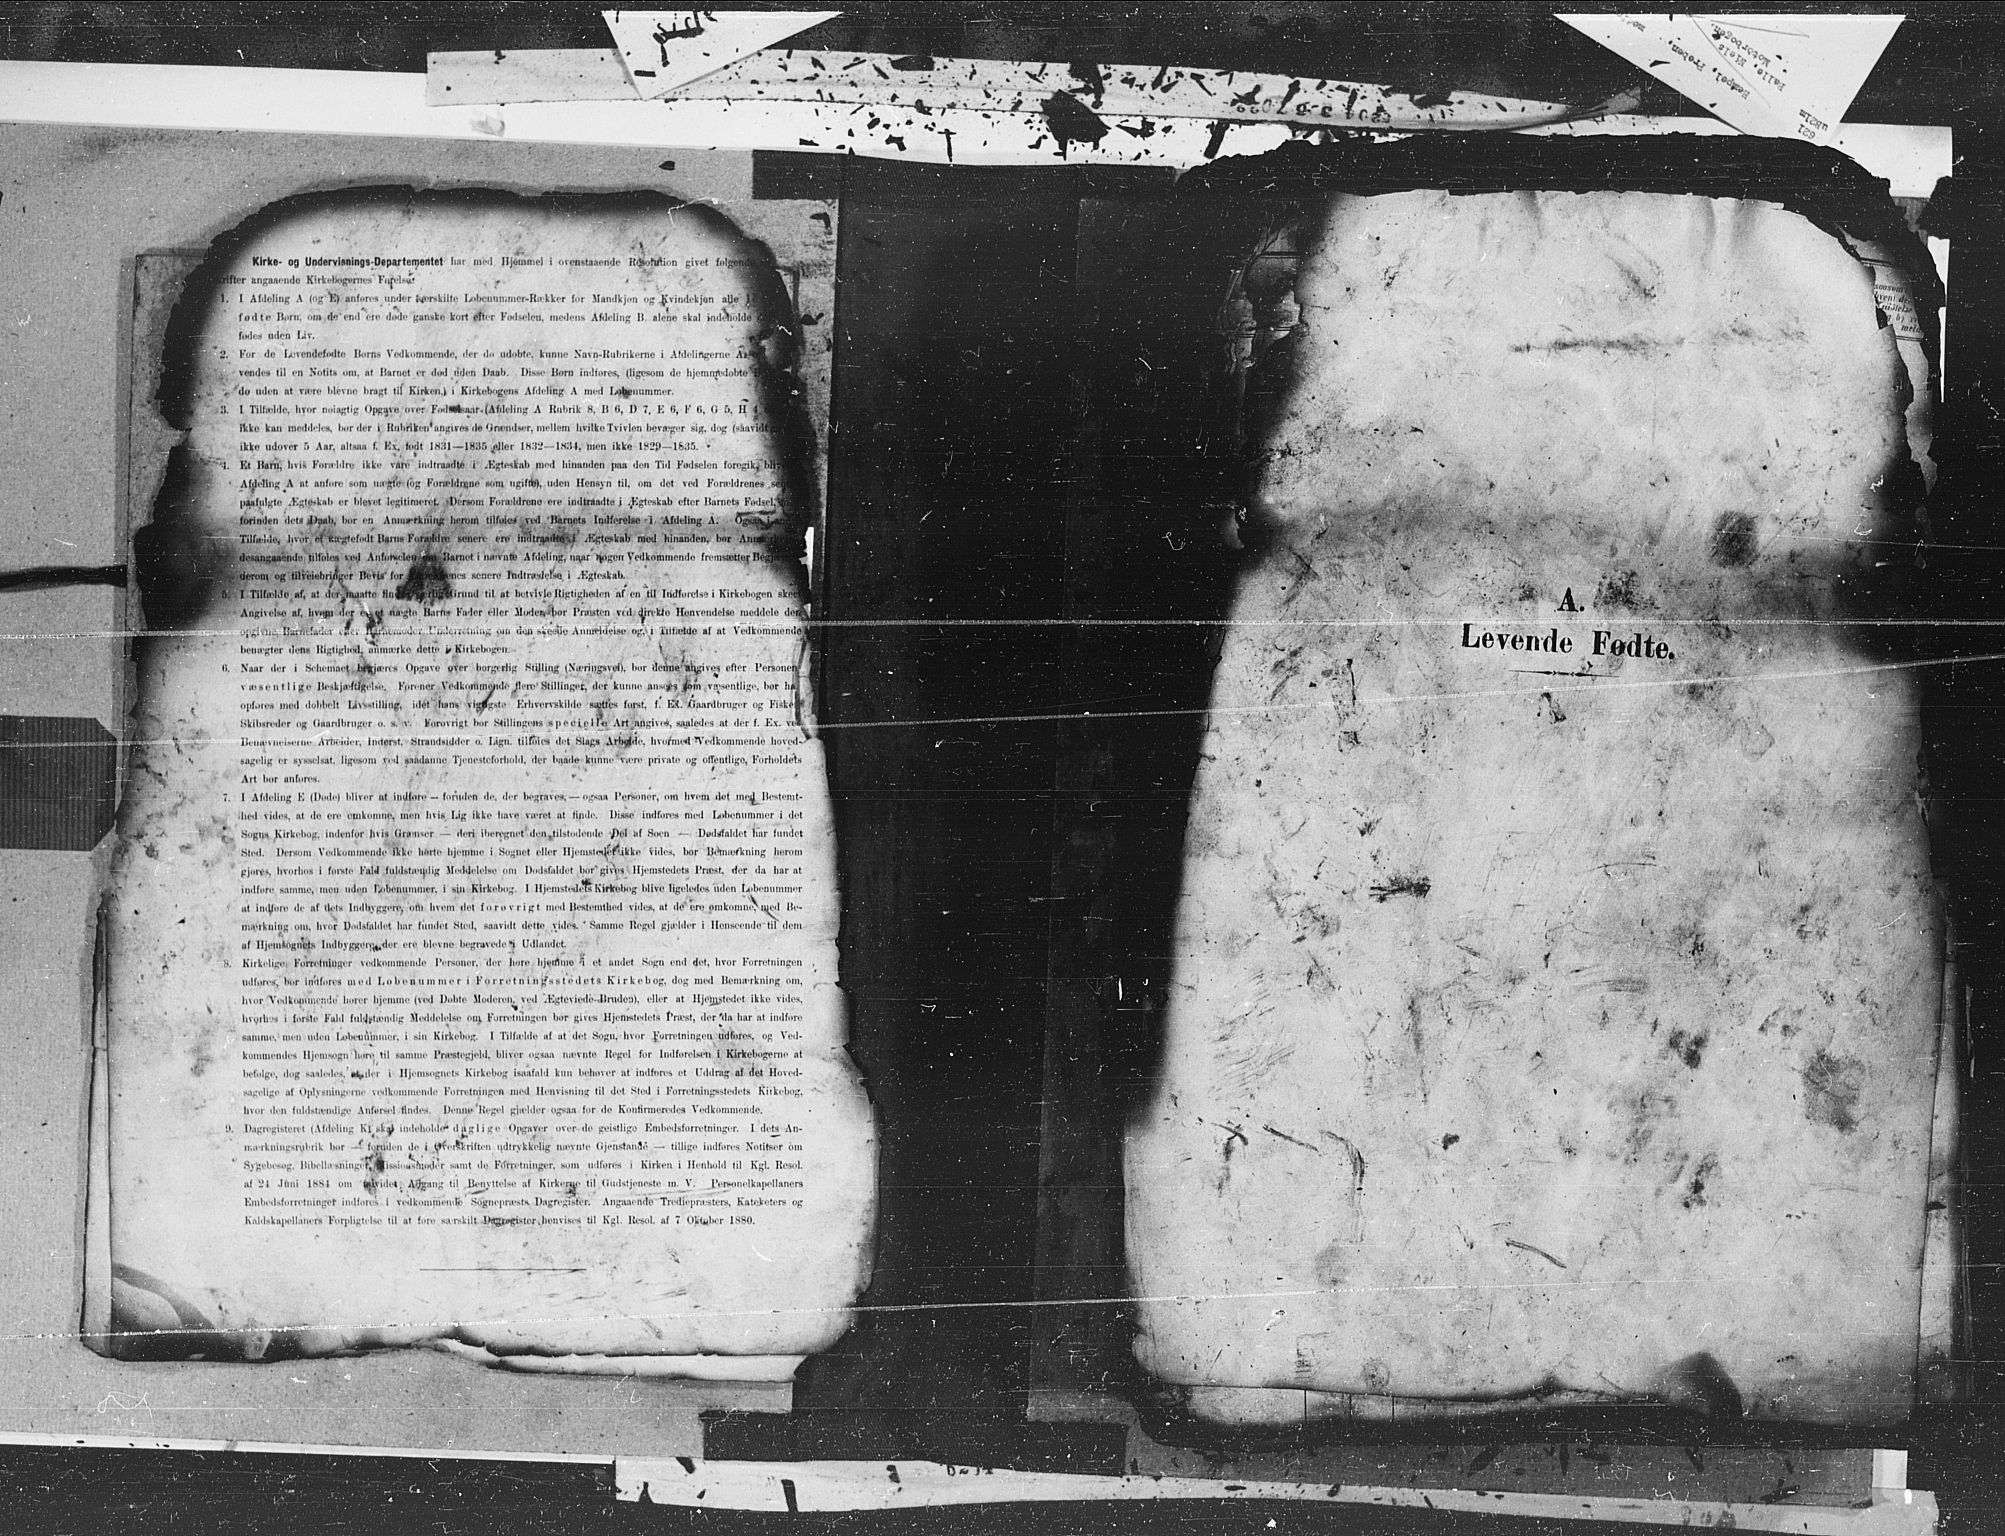 Kirke- og Undervisnings-Departementet har med Hjemmel i ovenstaaende Resolution givet følgende
rifter angaaende Kirkebøgernes Førelse:
1. I Afdeling A (og E) anføres under særskilte Løbenummer-Rækker for Mandkjøn og Kvindekjøn alle
fødte Børn, om de end ere døde ganske kort efter Fødselen, medens Afdeling B. alene skal indeholde
fødes uden Liv.
2. For de Levendefødte Børns Vedkommende, der dø udøbte, kunne Navn-Rubrikerne i Afdelingerne A
vendes til en Notits om, at Barnet er død uden Daab. Disse Børn indføres, (ligesom de hjemmedøbte
dø uden at være blevne bragt til Kirken,) i Kirkebogens Afdeling A med Løbenummer.
3. I Tilfælde, hvor nøiagtig Opgave over Fødselsaar (Afdeling A Rubrik 8, B 6, D 7, E 6, F 6, G 5, H 4
ikke kan meddeles, bør der i Rubriken angives de Grændser, mellem hvilke Tvivlen bevæger sig, dog (saavidt
ikke udover 5 Aar, altsaa f. Ex. født 1831—1835 eller 1832—1834, men ikke 1829—1835.
4. Et Barn, hvis Forældre ikke vare indtraadte i Ægteskab med hinanden paa den Tid Fødselen foregik,
Afdeling A at anføre som uægte (og Forældrene som ugifte), uden Hensyn til, om det ved Forældrenes
paafulgte Ægteskab er blevet legitimeret. Dersom Forældrene ere indtraadte i Ægteskab efter Barnets Fødsel,
forinden dets Daab, bør en Anmærkning herom tilføies ved Barnets Indførelse i Afdeling A. Ogsaa i
Tilfælde, hvor et uægtefødt Barns Forældre senere ere indtraadte i Ægteskab med hinanden, bør
desangaaende tilføies ved Anførselen om Barnet i nævnte Afdeling, naar nogen Vedkommende fremsætter
derom og tilveiebringer Bevis for Forældrenes senere Indtrædelse i Ægteskab.
5. I Tilfælde af, at der maatte findes særlig Grund til at betvivle Rigtigheden af en til Indførelse i Kirkebogen
Angivelse af, hvem der er et uægte Barns Fader eller Moder, bør Præsten ved direkte Henvendelse meddele den
opgivne Barnefader eller Barnemoder Underretning om den skeede Anmeldelse og, i Tilfælde af at Vedkommende
benægter dens Rigtighed, anmærke dette i Kirkebogen.
6. Naar der i Schemaet begjæres Opgave over borgerlig Stilling (Næringsvei), bør denne angives efter Personens
væsentlige Beskjæftigelse. Forener Vedkommende flere Stillinger, der kunne ansees som væsentlige, bør han
opføres med dobbelt Livsstilling, idet hans vigtigste Erhvervskilde sættes først, f. Ex. Gaardbruger og Fisker,
Skibsreder og Gaardbruger o. s. v. Forøvrigt bør Stillingens specielle Art angives, saaledes at der f. Ex. ved
Benævnelserne Arbeider, Inderst, Strandsidder o. Lign. tilføies det Slags Arbeide, hvormed Vedkommende hoved-
sagelig er sysselsat, ligesom ved saadanne Tjenesteforhold, der baade kunne være private og offentlige, Forholdets
Art bør anføres.
7. I Afdeling E (Døde) bliver at indføre — foruden de, der begraves, — ogsaa Personer, om hvem det med Bestemt-
hed vides, at de ere omkomne, men hvis Lig ikke have været at finde. Disse indføres med Løbenummer i det
Sogns Kirkebog, indenfor hvis Grænser — deri iberegnet den tilstødende Del af Søen — Dødsfaldet har fundet
Sted. Dersom Vedkommende ikke hørte hjemme i Sognet eller Hjemstedet ikke vides, bør Bemærkning herom
gjøres, hvorhos i første Fald fuldstændig Meddelelse om Dødsfaldet bør gives Hjemstedets Præst, der da har at
indføre samme, men uden Løbenummer, i sin Kirkebog. I Hjemstedets Kirkebog blive ligeledes uden Løbenummer
at indføre de af dets Indbyggere, om hvem det forøvrigt med Bestemthed vides, at de ere omkomne, med Be-
mærkning om, hvor Dødsfaldet har fundet Sted, saavidt dette vides. Samme Regel gjælder i Henseende til dem
af Hjemsognets Indbyggere, der ere blevne begravede i Udlandet.
8. Kirkelige Forretninger vedkommende Personer, der høre hjemme i et andet Sogn end det, hvor Forretningen
udføres, bør indføres med Løbenummer i Forretningsstedets Kirkebog, dog med Bemærkning om,
hvor Vedkommende hører hjemme (ved Døbte Moderen, ved Ægteviede Bruden), eller at Hjemstedet ikke vides,
hvorhos i første Fald fuldstændig Meddelelse om Forretningen bør gives Hjemstedets Præst, der da har at indføre
samme, men uden Løbenummer, i sin Kirkebog. I Tilfælde af at det Sogn, hvor Forretningen udføres, og Ved-
kommendes Hjemsogn høre til samme Præstegjeld, bliver ogsaa nævnte Regel for Indførelsen i Kirkebøgerne at
befølge, dog saaledes, at der i Hjemsognets Kirkebog isaafald kun behøver at indføres et Uddrag af det Hoved-
sagelige af Oplysningerne vedkommende Forretningen med Henvisning til det Sted i Forretningsstedets Kirkebog,
hvor den fuldstændige Anførsel findes. Denne Regel gjælder ogsaa for de Konfirmeredes Vedkommende.
9. Dagregisteret (Afdeling K) skal indeholde daglige Opgaver over de geistlige Embedsforretninger. I dets An-
mærkningsrubrik bør — foruden de i Overskriften udtrykkelig nævnte Gjenstande — tillige indføres Notitser om
Sygebesøg, Bibellæsninger, Missionsmøder samt de Forretninger, som udføres i Kirken i Henhold til Kgl. Resol.
af 24 Juni 1884 om udvidet Adgang til Benyttelse af Kirkerne til Gudstjeneste m. V. Personelkapellaners
Embedsforretninger indføres i vedkommende Sognepræsts Dagregister. Angaaende Trediepræsters, Kateketers og
Kaldskapellaners Forpligtelse til at føre særskilt Dagregister henvises til Kgl. Resol. af 7 Oktober 1880.
A.
Levende Fødte.